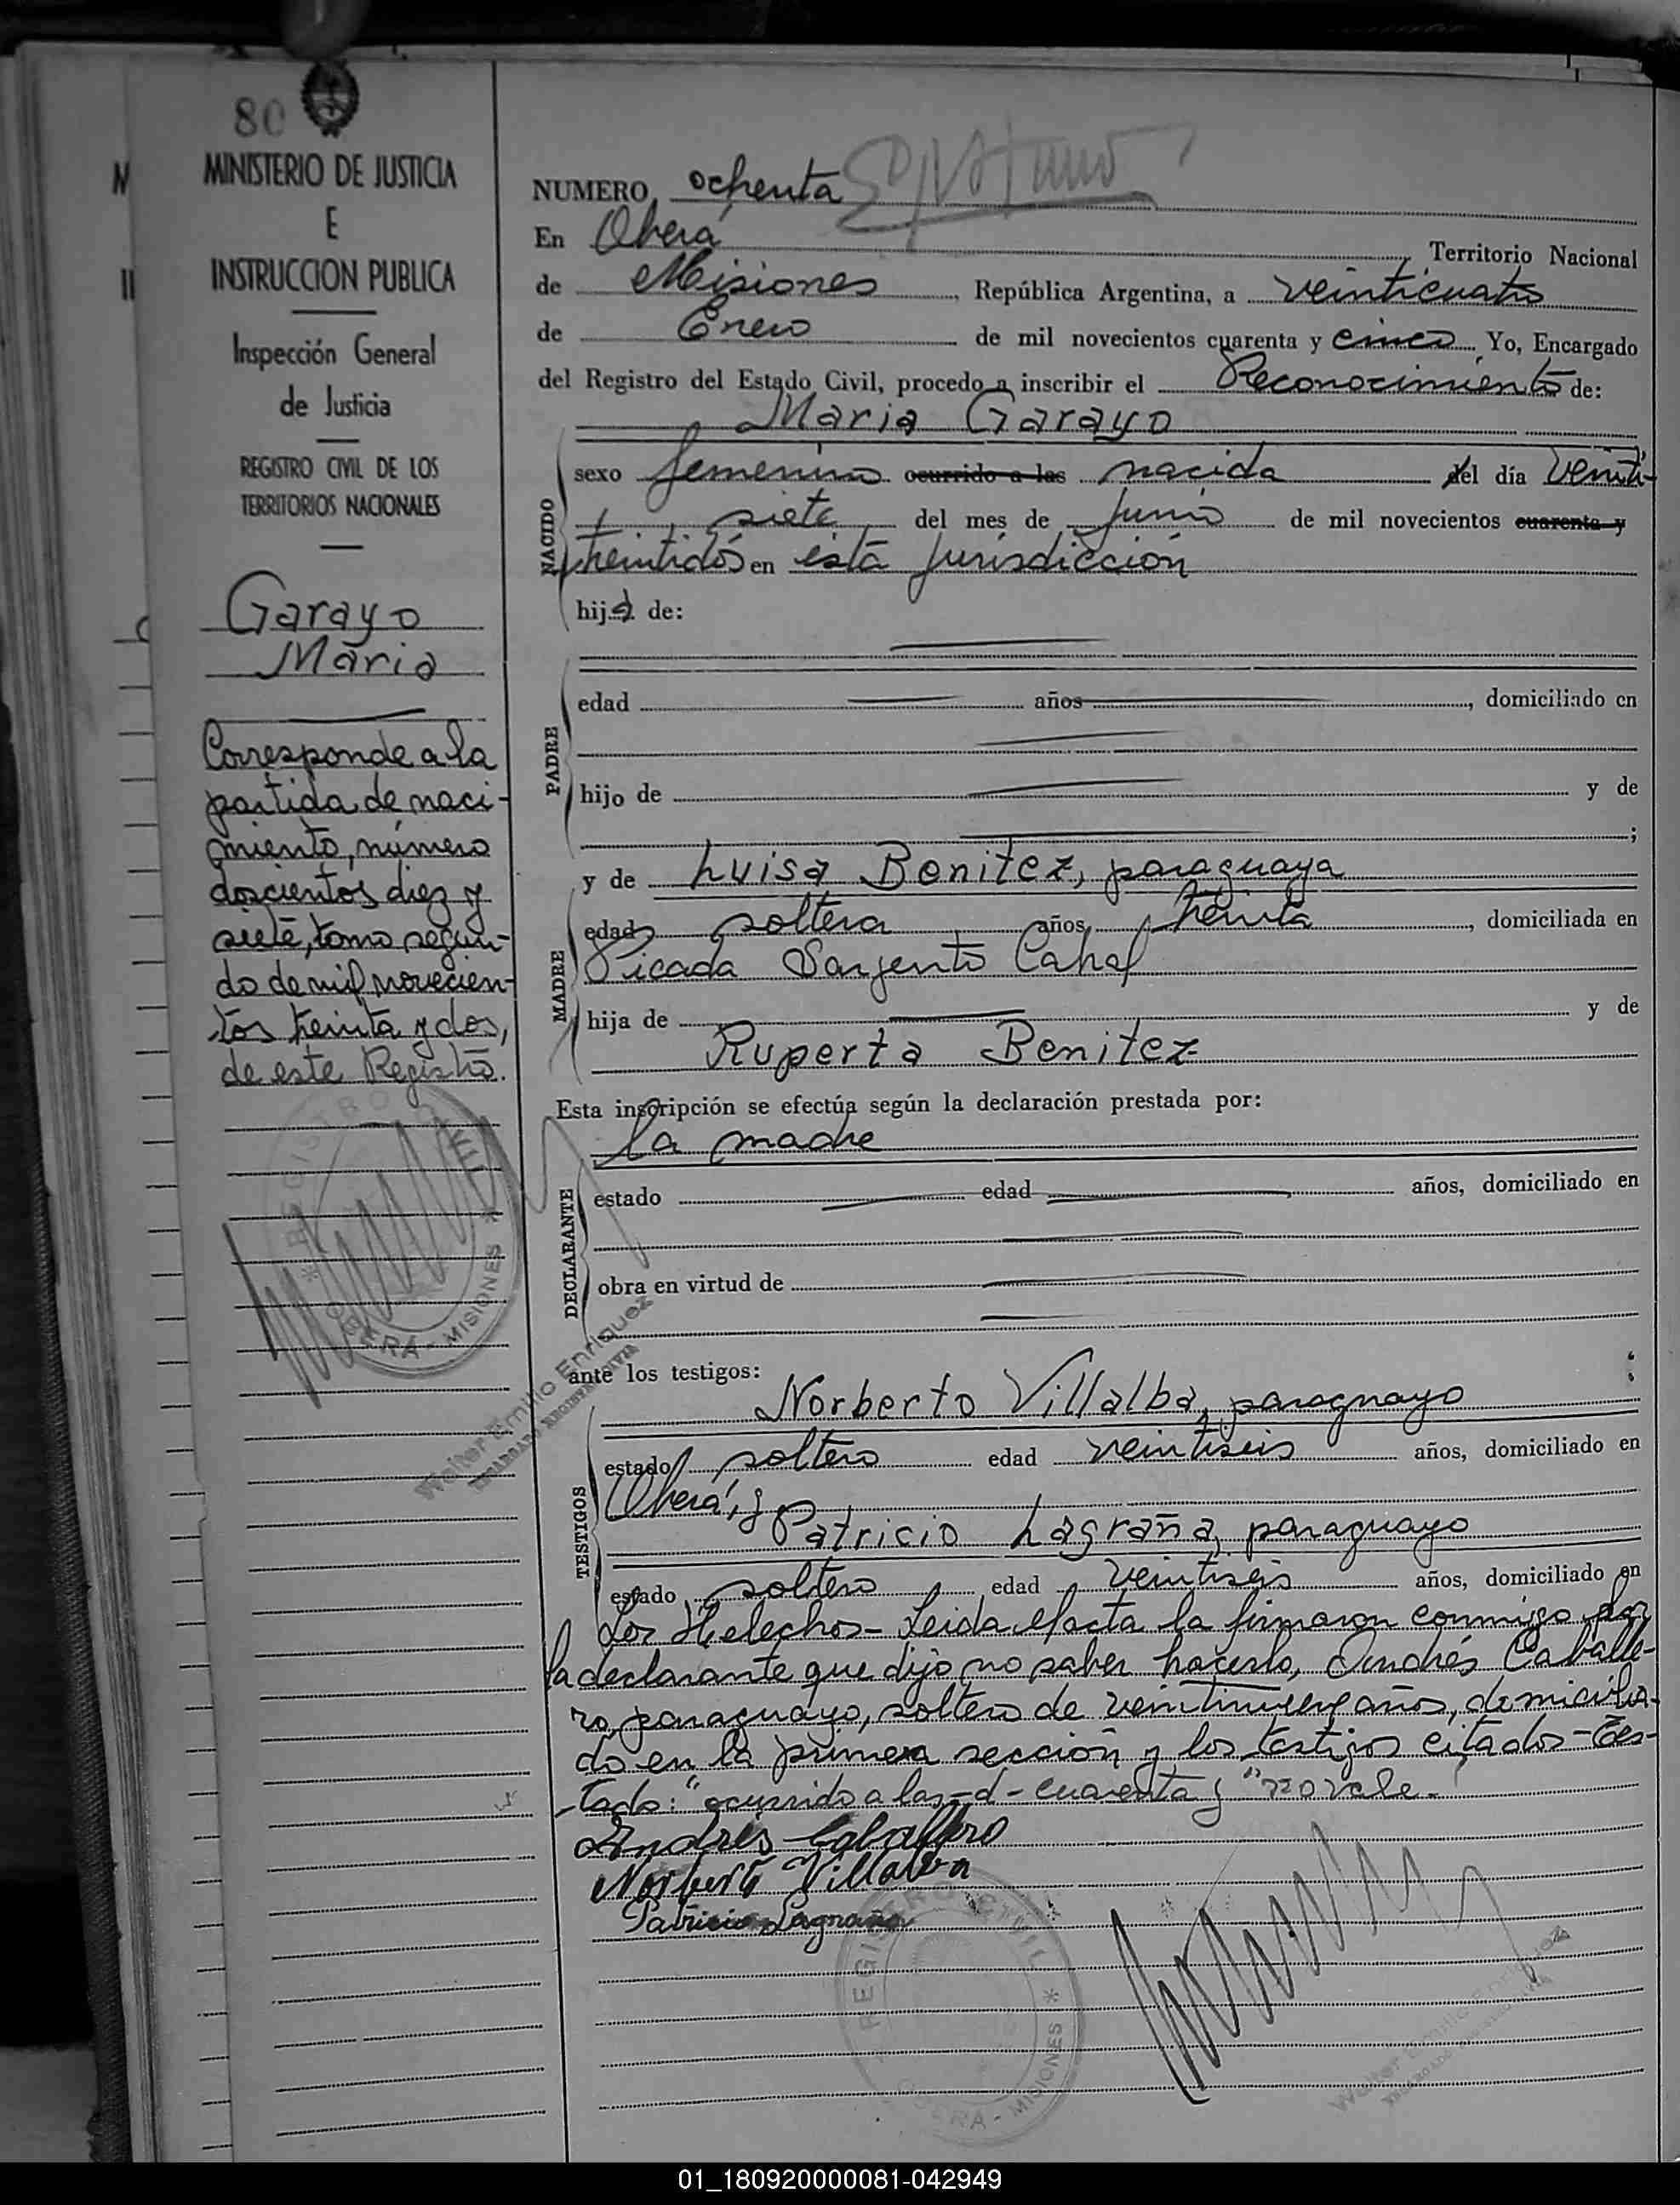 80
MINISTERIO DE JUSTICIA
E
INSTRUCCION PUBLICA
Inspección General
de Justicia
REGISTRO CIVIL DE LOS
TERRITORIOS NACIONALES
Garayo
Maria
Corresponde a la
partida de naci-
miento, número
doscientos diez y
siete, tomo segun-
do de mil novecien-
tos treinta y dos,
de este Registro.
NUMERO ochenta
En Oberá Territorio Nacional
de Misiones, República Argentina, a veinticuatro
de Enero de mil novecientos cuarenta y cinco Yo, Encargado
del Registro del Estado Civil, procedo a inscribir el Reconocimiento de:
Maria Garayo
NACIDO
sexo femenino ocurrido a las nacida del día veinti-
siete del mes de Junio de mil novecientos cuarenta y
treintidós en esta Jurisdicción
hija de:
PADRE
edad años, domiciliado en
hijo de y de
;
y de Luisa Benitez, paraguaya
MADRE
edad soltera años, treinta, domiciliada en
Picada Sargento Cabral
hija de y de
Ruperta Benitez
Esta inscripción se efectúa según la declaración prestada por:
la madre
DECLARANTE
estado edad años, domiciliado en
obra en virtud de
ante los testigos:
Norberto Villalba, paraguayo
TESTIGOS
estado soltero edad veintiseis años, domiciliado en
Oberá, y
Patricio Lagraña, paraguayo
estado soltero edad veintiseis años, domiciliado en
Los Helechos - Leida el acta la firmaron conmigo por
la declarante que dijo no saber hacerlo, Andrés Caballe-
ro, paraguayo, soltero de veintinueve años, domicilia-
do en la primera sección y los testigos citados - Tes-
tado: "ocurrido a las - d - cuarenta y" no vale.
Andrés Caballero
Norberto Villalba
Patricio Lagraña
REGISTRO CIVIL
OBERA - MISIONES
Walter Emilio Enriquez
ENCARGADO REGISTRO CIVIL
REGISTRO CIVIL
OBERA - MISIONES
Walter Emilio Enriquez
01_180920000081-042949